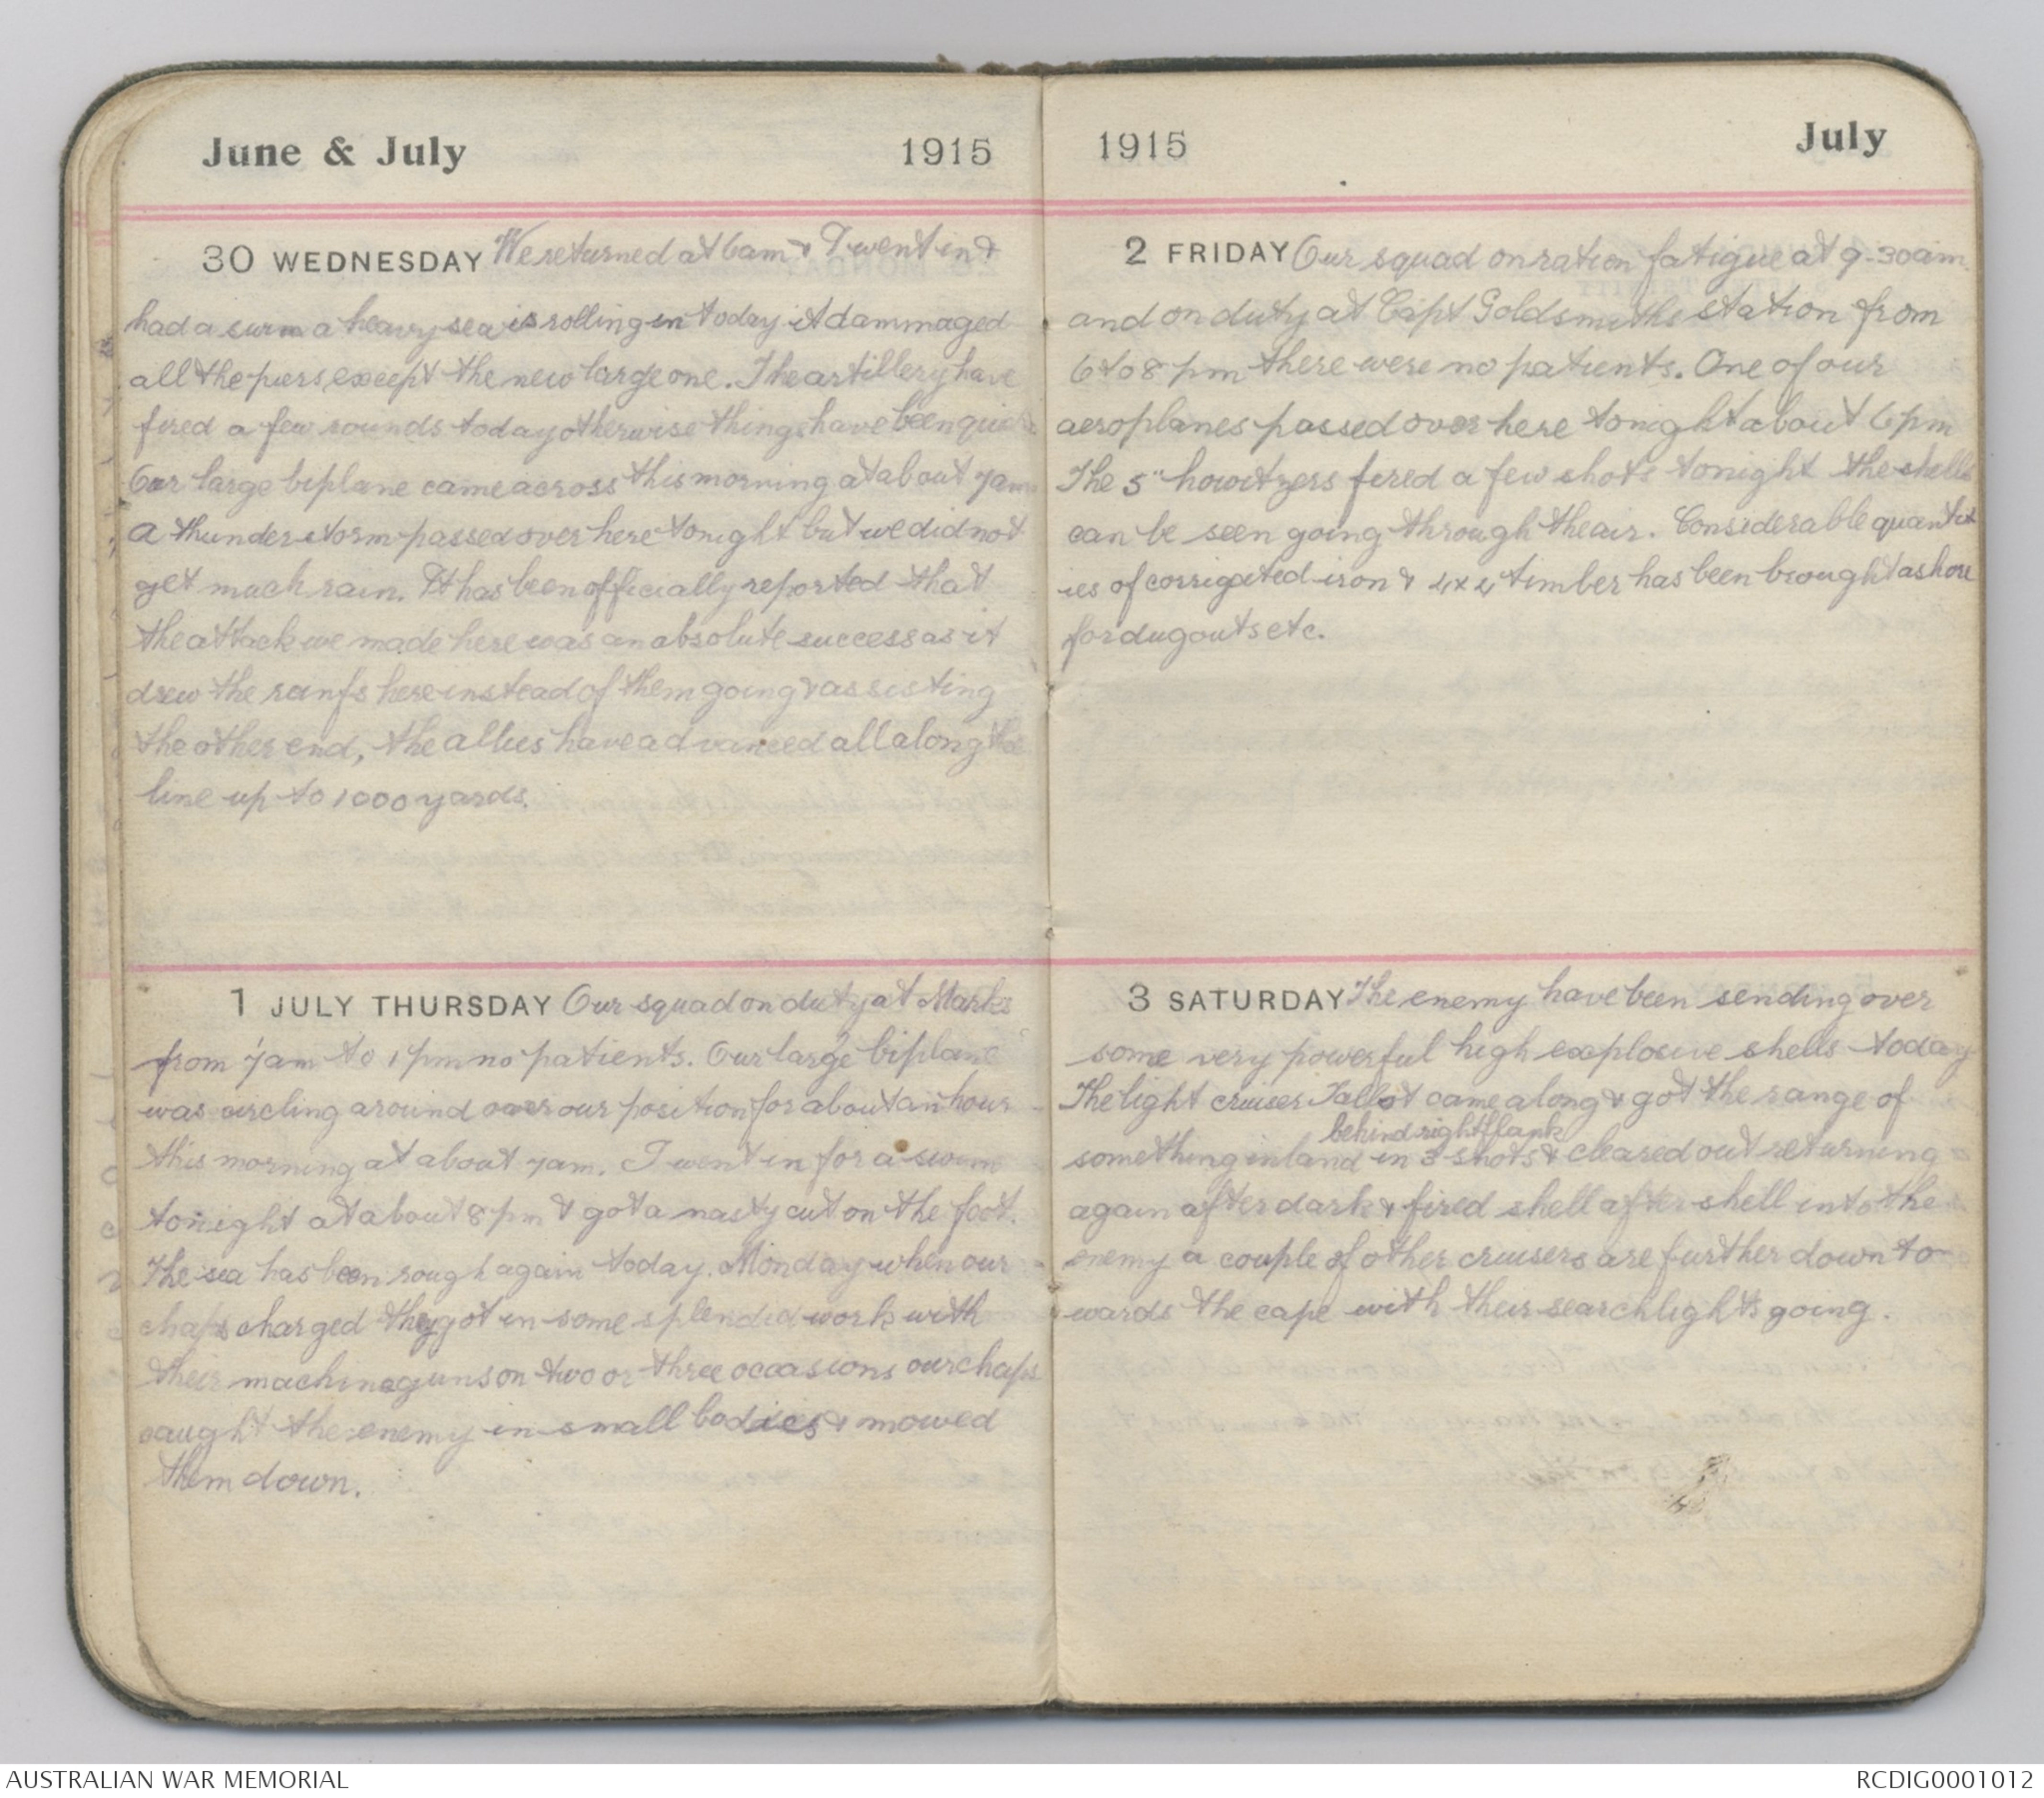 June & July 1915
30 WEDNESDAY We returned at 6am & I went in &
had a swim a heavy sea is rolling in today it dammaged
all the piers, except the new large one. The artillery have
fired a few rounds today otherwise things have been quiet
Our large biplane came across this morning at about 7am
A thunderstorm passed over here tonight but we did not
get much rain. It has been officially reported that
the attack we made here was an absolute success as it
drew the reinfs here instead of them going & assisting
the other end, the allies have advanced all along the
line up to 1000 yards.
1 JULY THURSDAY Our squad on duty at Marks
from 7am to 1pm no patients. Our large biplane
was circling around over our position for about an hour
this morning at about 7am. I went in for a swim
tonight at about 8pm & got a nasty cut on the foot.
The sea has been rough again today. Monday when our
chaps charged they got in some splendid work with
their machine guns on two or three occasions our chaps
caught the enemy in small bodies & mowed
them down.
1915 July
2 FRIDAY Our squad on ration fatigue at 9.30am
and on duty at Capt Goldsmiths station from
6 to 8 pm there were no patients. One of our
aeroplanes passed over here tonight about 6pm
The 5" howitzers fired a few shots tonight the shells
can be seen going through the air. Considerable quantit
ies of corrigated iron & 4x4 timber has been brought ashore
for dugouts etc.
3 SATURDAY The enemy have been sending over
some very powerful high explosive shells today
The light cruiser Talbot came along & got the range of
behind right flank
something inland in 3 shots & cleared out returning
again after dark & fired shell after shell into the
enemy a couple of other cruisers are further down to
wards the cape with their searchlights going.
AUSTRALIAN WAR MEMORIAL RCDIG0001012